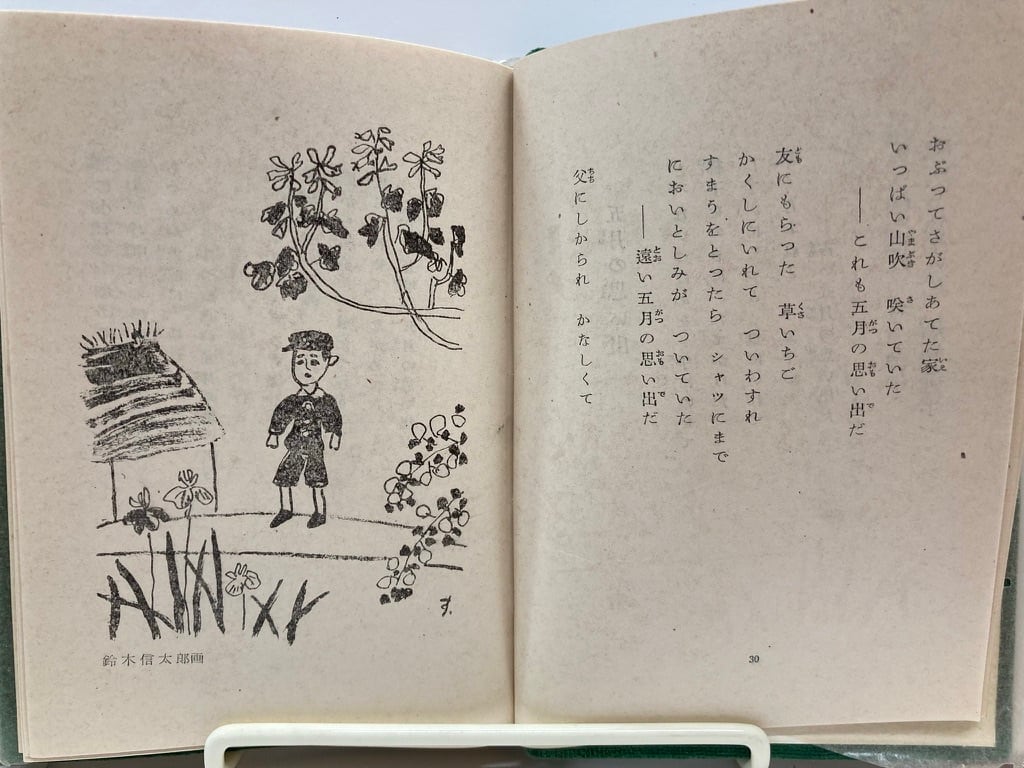 おぶってさがしあてた家
いっぱい山吹　咲いていた
――これも五月の思い出だ
友にもらった　草いちご
かくしにいれて　ついわすれ
すまうをとったら　シャツにまで
においとしみが　ついていた
――遠い五月の思い出だ
父にしかられ　かなしくて
30
鈴木信太郎画
す.